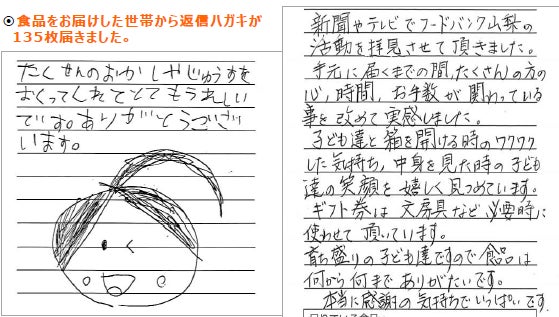 食品をお届けした世帯から返信ハガキが
135枚届きました。
たくさんのおかしやじゅうすを
おくってくれてとてもうれしい
です。ありがとうござ
います。
新聞やテレビでフードバンク山梨の
活動を拝見させて頂きました。
手元に届くまでの間、たくさんの方の
心、時間、お手数が関わっている
事を改めて実感しました。
子ども達と箱を開ける時のワクワク
した気持ち、中身を見た時の子ども
達の笑顔を嬉しく見つめています。
ギフト券は文房具など必要時に
使わせて頂いています。
育ち盛りの子ども達ですので食品は
何から何までありがたいです。
本当に感謝の気持ちでいっぱいです。